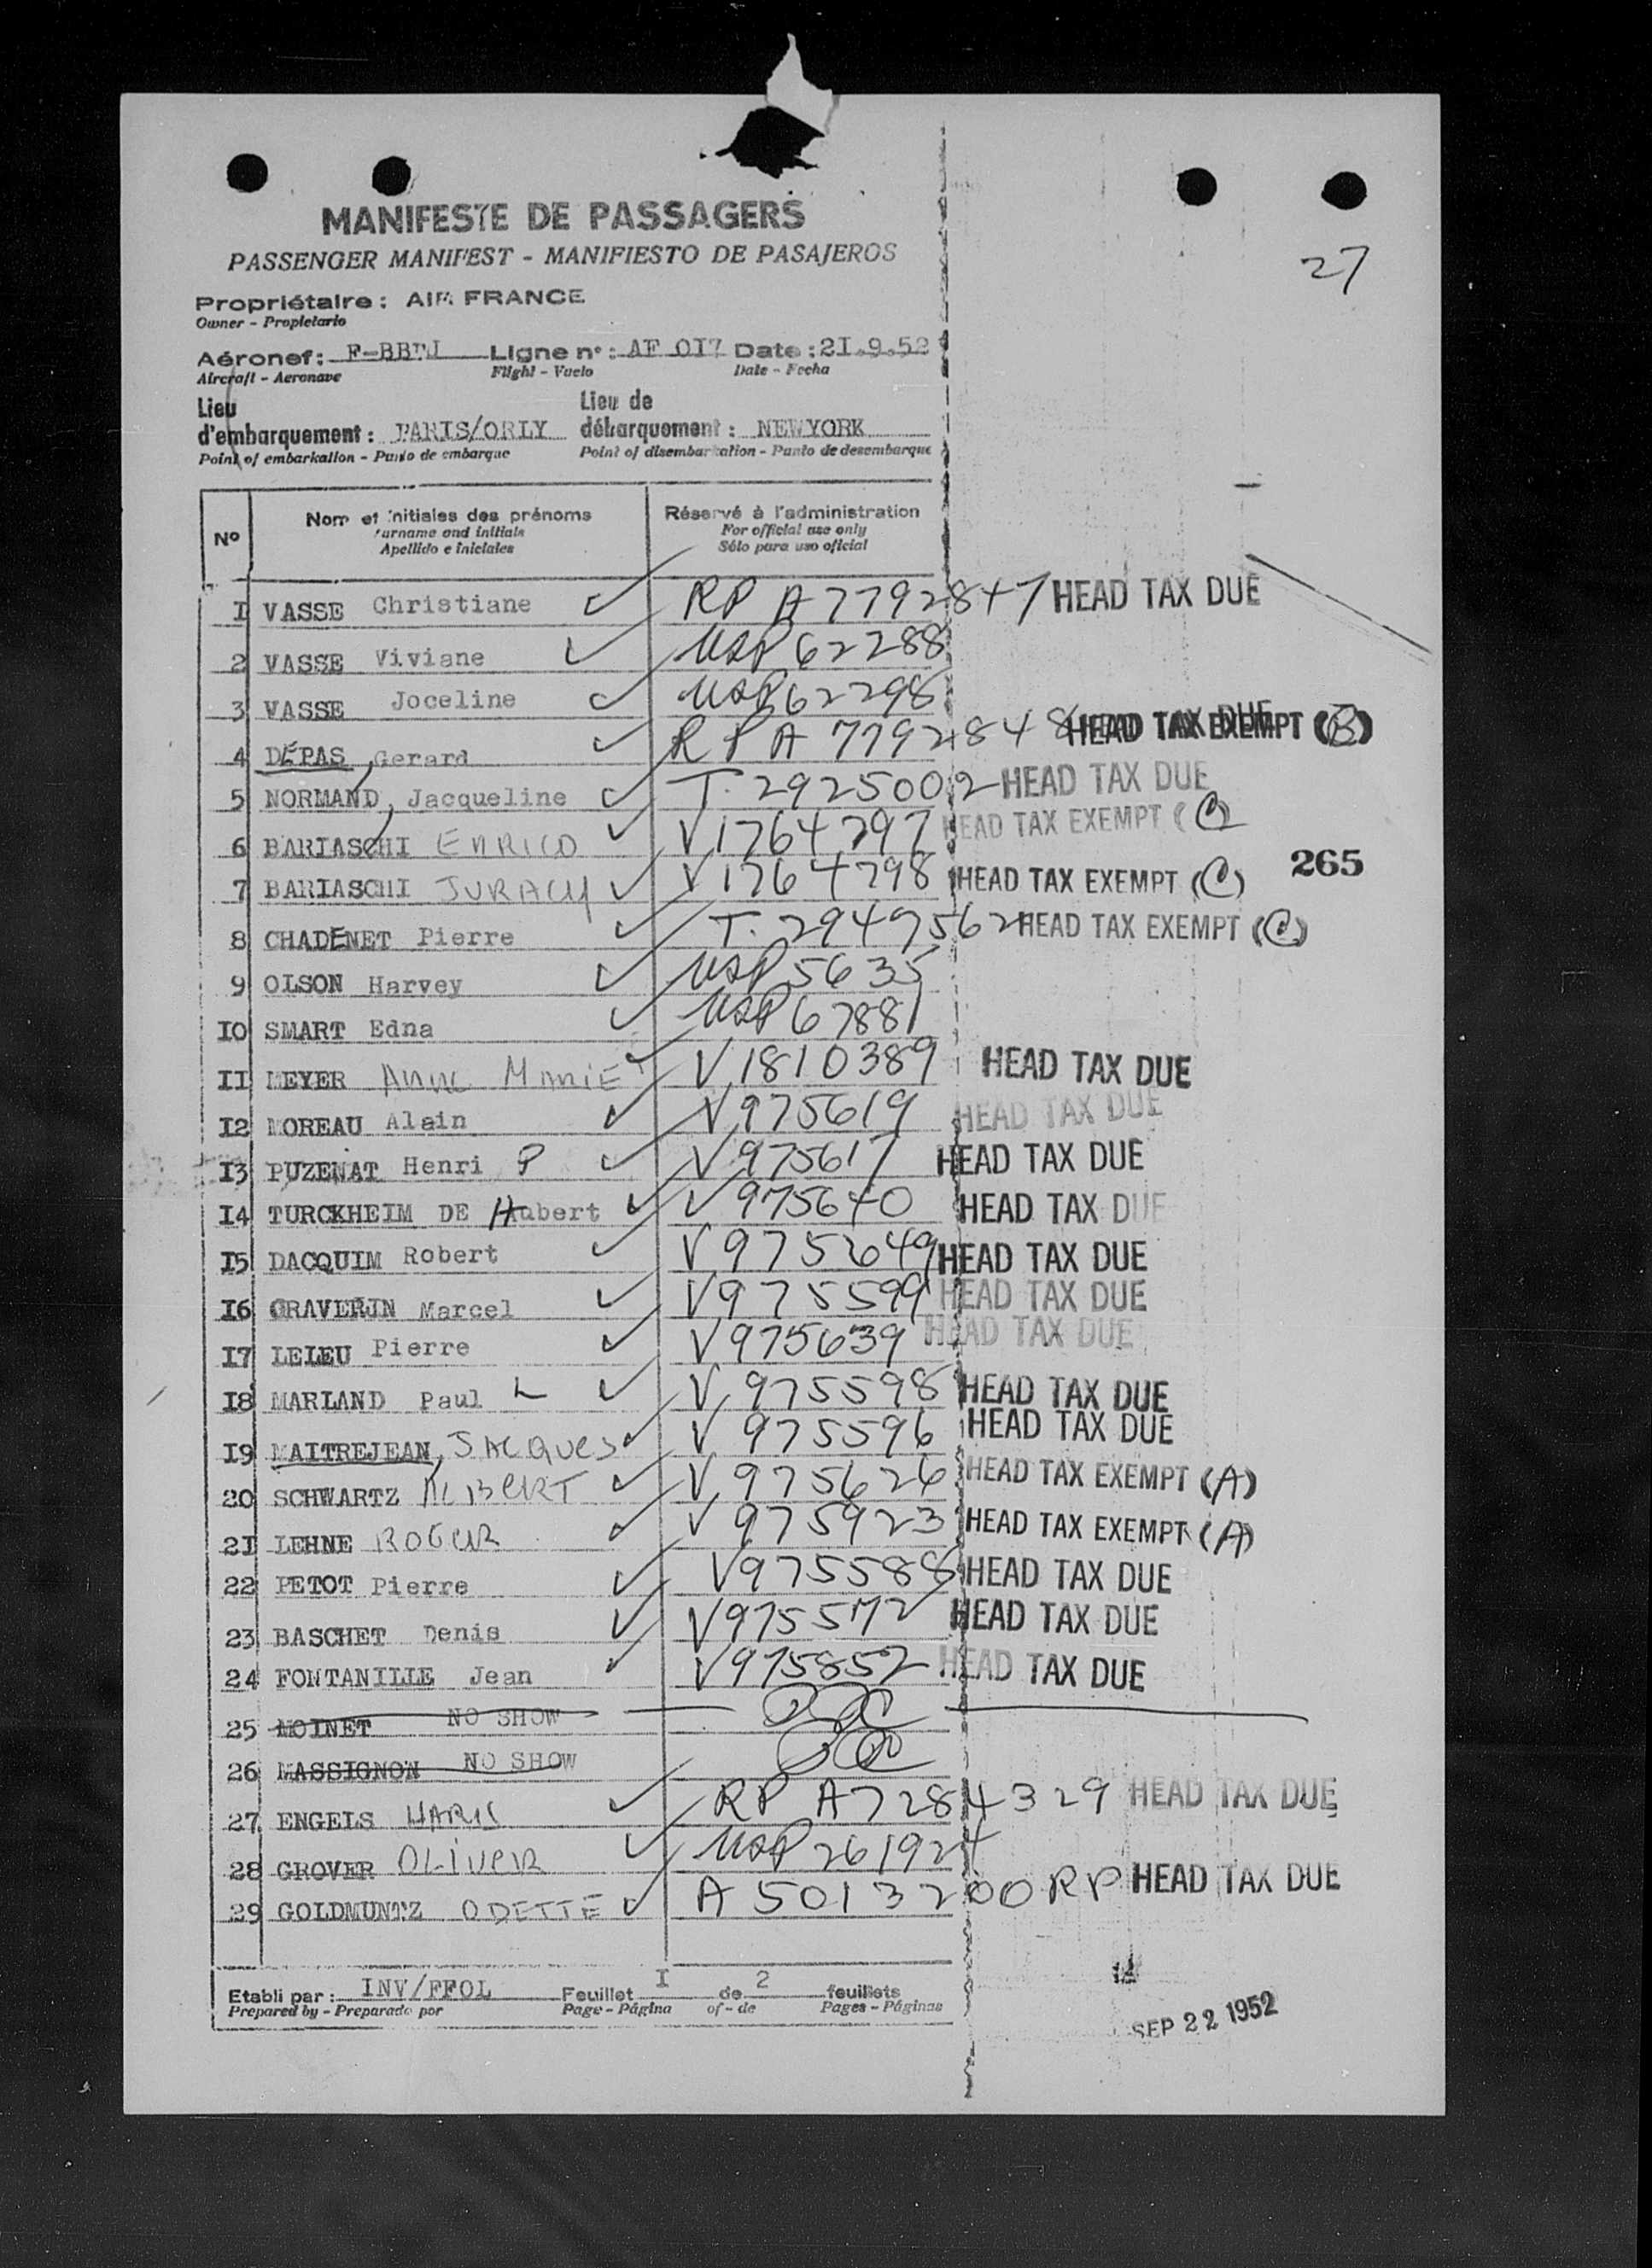 27
MANIFESTE DE PASSAGERS
PASSENGER MANIFEST - MANIFIESTO DE PASAJEROS
Propriétaire : AIR FRANCE
Owner - Propietario
Aéronef : Ligne n° : AF 017 Date : 21.9.52
Aircraft - Aeronave Flight - Vuelo Date - Fecha
Lieu Lieu de
d'embarquement : PARIS/ORLY débarquement : NEWYORK
Point of embarkation - Punto de embarque Point of disembarkation - Punto de desembarque
Nom et initiales des prénoms Réservé à l'administration
Nº Surname and initials For official use only
Apellido e iniciales Sólo para uso oficial
I VASSE Christiane RP A7792847 HEAD TAX DUE
2 VASSE Viviane USP 62288
3 VASSE Joceline USP 62298
4 DÉPAS, Gerard RP A 7792848 HEAD TAX EXEMPT (B)
5 NORMAND, Jacqueline T. 2925002 HEAD TAX DUE
6 BARIASCHI ENRICO V 1764797 HEAD TAX EXEMPT (C)
7 BARIASCHI JURACY V 1764798 HEAD TAX EXEMPT (C) 265
8 CHADENET Pierre T. 2949562 HEAD TAX EXEMPT (C)
9 OLSON Harvey USP 5635
IO SMART Edna USP 67881
II MEYER ANNE MARIE V 1810389 HEAD TAX DUE
I2 MOREAU Alain V 975619 HEAD TAX DUE
I3 PUZENAT Henri P V 975617 HEAD TAX DUE
I4 TURCKHEIM DE Hubert V 975640 HEAD TAX DUE
I5 DACQUIM Robert V 975649 HEAD TAX DUE
I6 GRAVERIN Marcel V 975599 HEAD TAX DUE
I7 LELEU Pierre V 975639 HEAD TAX DUE
I8 MARLAND Paul L V 975598 HEAD TAX DUE
I9 MAITREJEAN, JACQUES V 975596 HEAD TAX DUE
20 SCHWARTZ ALBERT V 975626 HEAD TAX EXEMPT (A)
2I LEHNE ROGER V 975923 HEAD TAX EXEMPT (A)
22 PETOT Pierre V 975588 HEAD TAX DUE
23 BASCHET Denis V 975572 HEAD TAX DUE
24 FONTANILLE Jean V 975852 HEAD TAX DUE
25 MOINET NO SHOW
26 MASSIGNON NO SHOW
27 ENGELS RP A7284329 HEAD TAX DUE
28 GROVER OLIVER USP 261924
29 GOLDMUNTZ ODETTE A 5013200 RP HEAD TAX DUE
Etabli par : INV/FFOL Feuillet I de 2 feuillets
Prepared by - Preparado por Page - Página of - de Pages - Páginas
SEP 22 1952